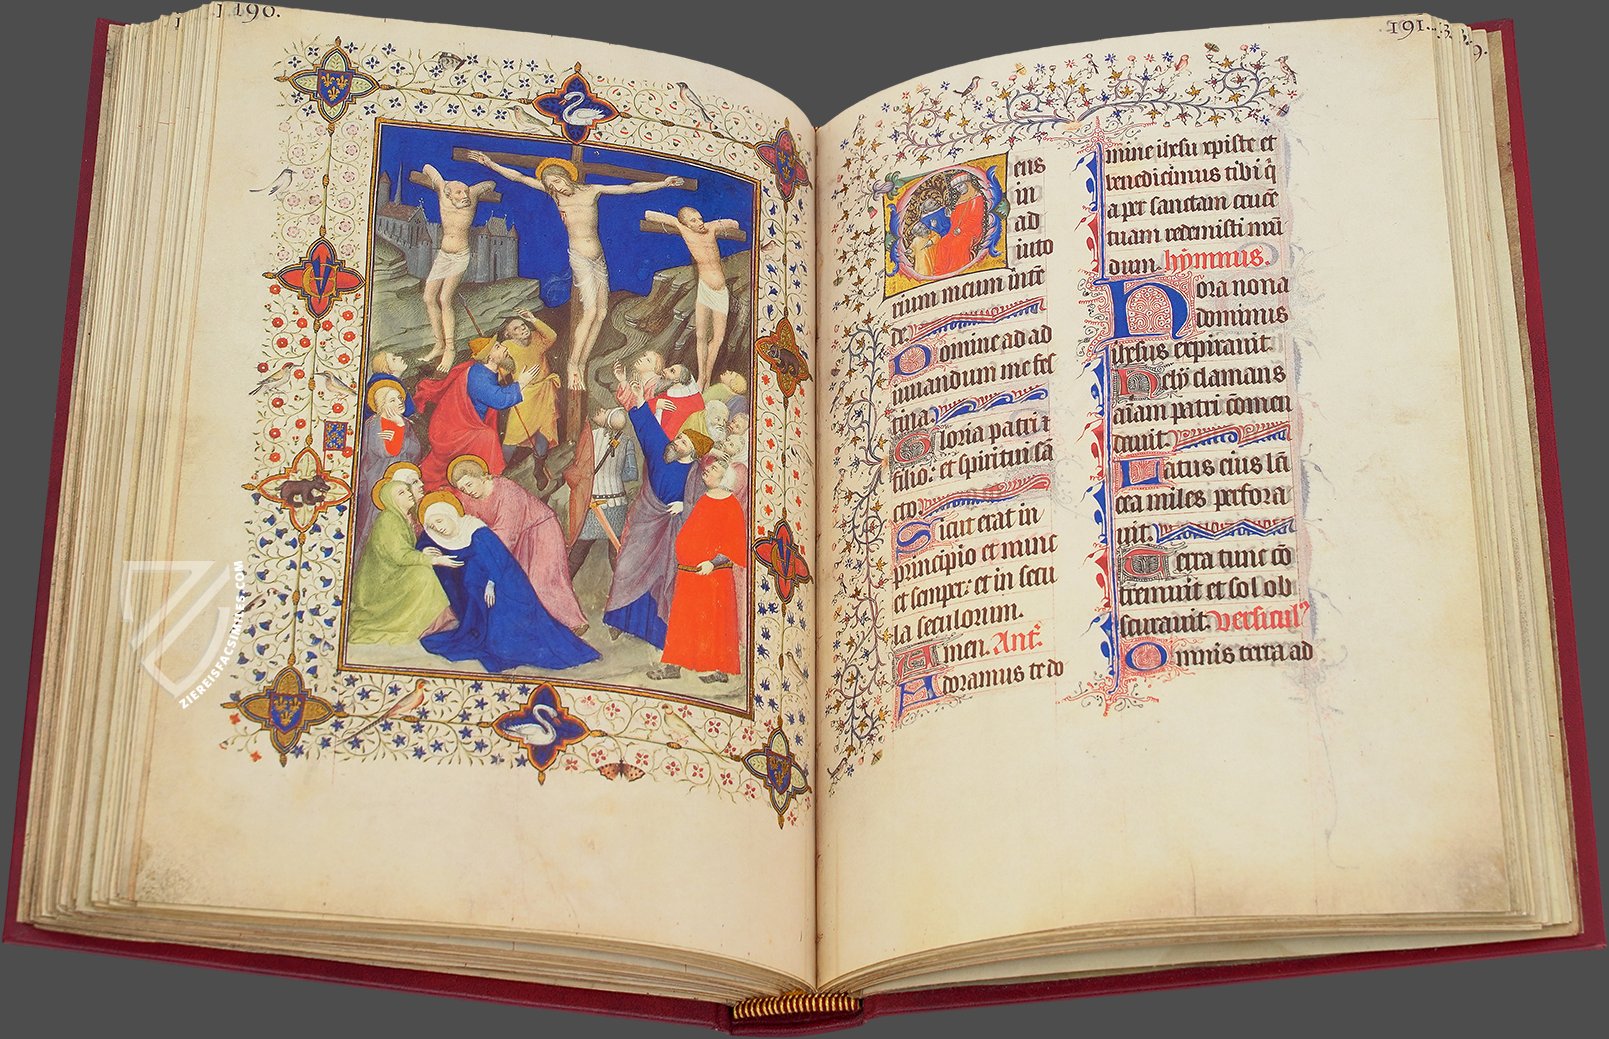 190.
191.
eus
in
ad
iuto
rium meum intē
de.
Domine ad ad
iuuandum me fes
tina.
Gloria patri ⁊
filio: et spiritui sā
cto.
Sicut erat in
principio et nunc
et semper: et in secu
la seculorum.
Amen. Ant̄.
Adoramus te do
mine ihesu xpiste et
benedicimus tibi q̄
a per sanctam crucē
tuam redemisti mū
dum. hymnus.
Hora nona
dominus
ihesus expirauit.
Hely clamans
aīam patri cōmen
dauit.
Latus eius lā
cea miles perfora
uit.
Terra tunc cō
tremuit et sol ob
scurauit. Versicul⁹
Omnis terra ad
ZIEREISFACSIMILES.COM